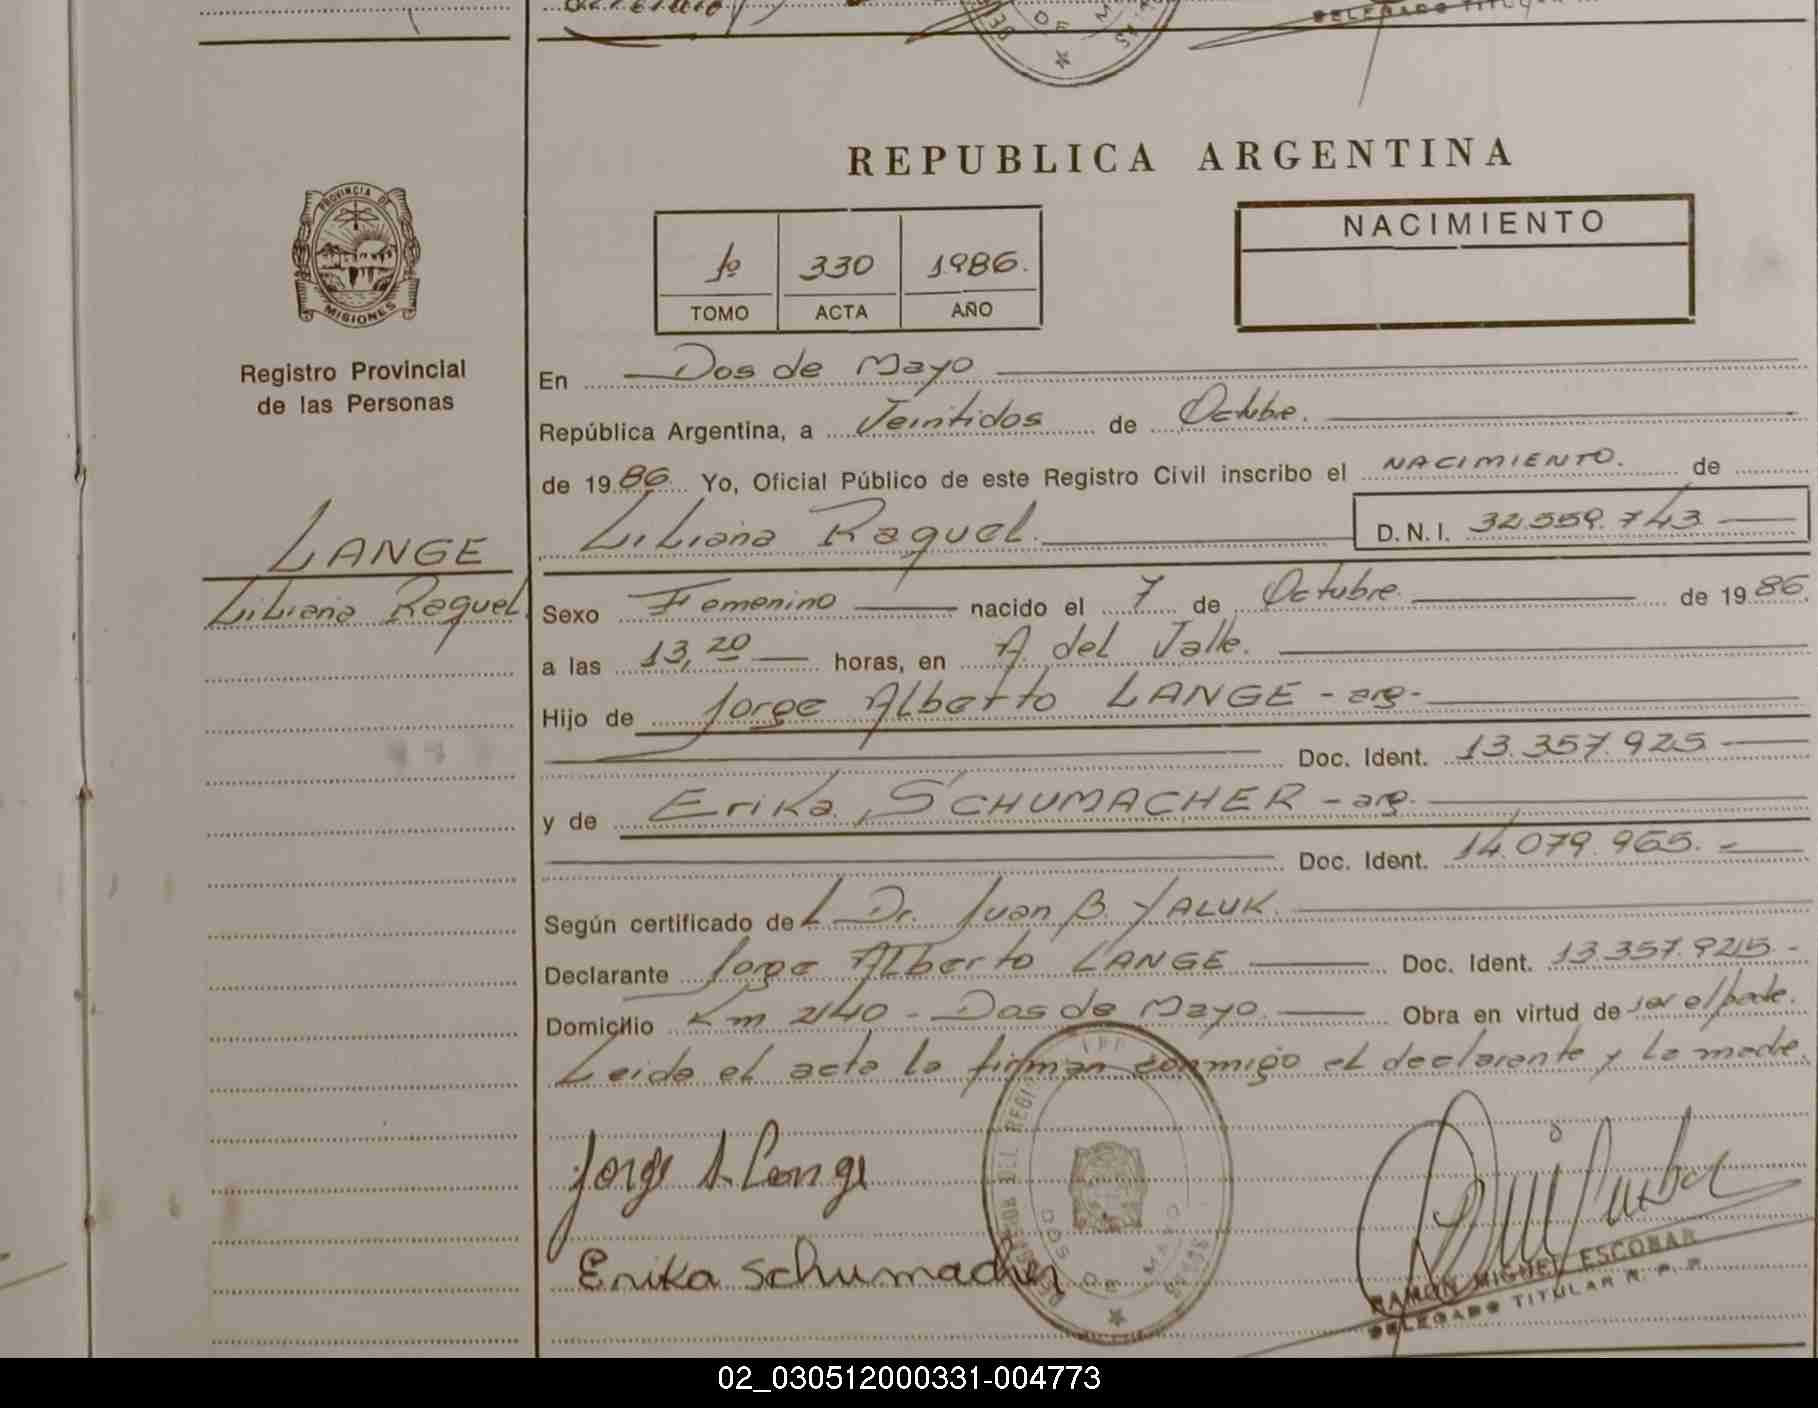 DELEGADO TITULAR
DE M
REPUBLICA ARGENTINA
PROVINCIA DE
MISIONES
1º 330 1986.
TOMO ACTA AÑO
NACIMIENTO
Registro Provincial
de las Personas
LANGE
Liliana Raquel
En Dos de Mayo
República Argentina, a Veintidos de Octubre.
de 1986 Yo, Oficial Público de este Registro Civil inscribo el NACIMIENTO. de
Liliana Raquel. D.N.I. 32.559.743
Sexo Femenino nacido el 7 de Octubre de 1986.
a las 13,20 horas, en A. del Valle.
Hijo de Jorge Alberto LANGE - arg-
Doc. Ident. 13.357.925
y de Erika SCHUMACHER - arg.
Doc. Ident. 14.079.965.-
Según certificado del Dr. Juan B. YALUK.
Declarante Jorge Alberto LANGE Doc. Ident. 13.357.925.-
Domicilio Km 240 - Dos de Mayo. Obra en virtud de ser el padre.
Leida el acta la firman conmigo el declarante y la madre.
Jorge A. Lange
Erika Schumacher
DOS DE MAYO
RAMON MIGUEL ESCOBAR
DELEGADO TITULAR R. P. P.
02_030512000331-004773